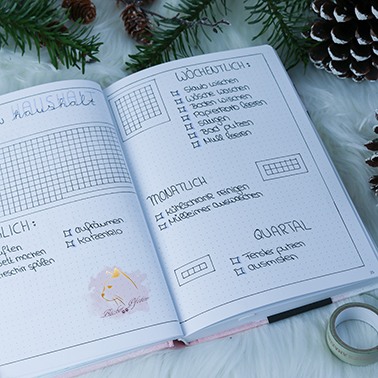 haushalt
GLICH:
üften
ett machen
eschirr spülen
aufräumen
Katzenklo
WÖCHENTLICH:
Staub wischen
Wäsche waschen
Boden wischen
Papierkorb leeren
saugen
Bad putzen
Müll leeren
MONATLICH
Kühlschrank reinigen
Mülleimer auswaschen
QUARTAL
Fenster putzen
ausmisten